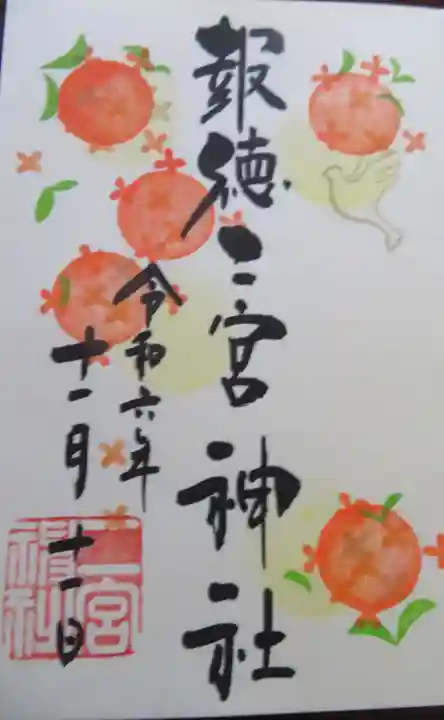 報徳二宮神社
令和六年
十一月十一日
二宮
神社